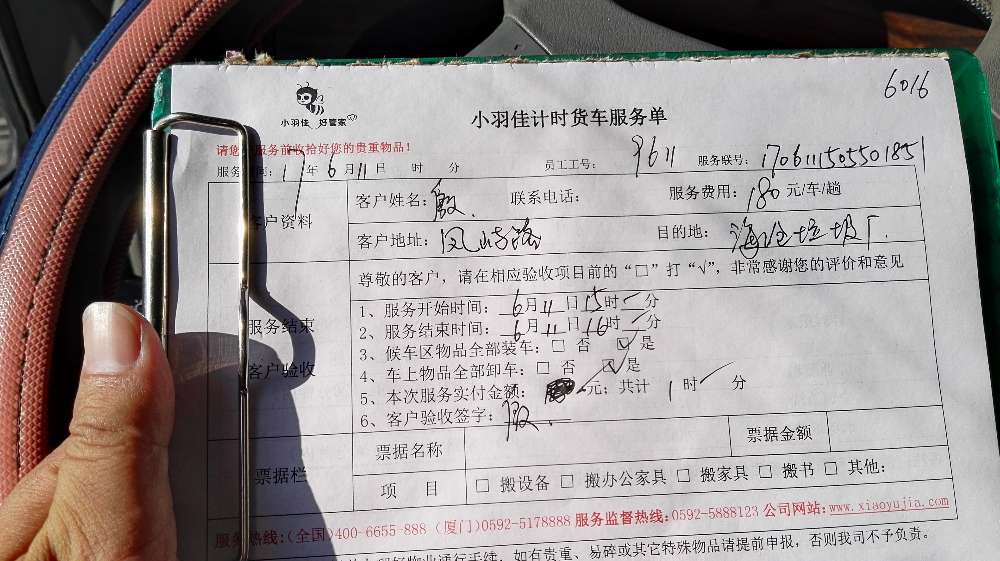 6016
小羽佳 好管家
小羽佳计时货车服务单
请您 服务前收拾好您的贵重物品!
服务 间: 17年 6月11日 时 分 员工工号: 9611 服务联号: 1706111505501851
客户资料
客户姓名: 殷. 联系电话: 服务费用: 180元/车/趟
客户地址: 凤屿路 目的地: 海沧垃圾厂.
尊敬的客户,请在相应验收项目前的“□”打“√”,非常感谢您的评价和意见
服务结束
客户验收
1、服务开始时间: 6月11日15时 分
2、服务结束时间: 6月11日16时 分
3、候车区物品全部装车: □ 否 ☑ 是
4、车上物品全部卸车: □ 否 ☑ 是
5、本次服务实付金额: 元; 共计 1时 分
6、客户验收签字: 殷.
票据栏
票据名称 票据金额
项 目 □ 搬设备 □ 搬办公家具 □ 搬家具 □ 搬书 □ 其他:
服 热线:(全国)400-6655-888 (厦门)0592-5178888 服务监督热线:0592-5888123 公司网站:www.xiaoyujia.com
好物业通行手续,如有贵重、易碎或其它特殊物品请提前申报,否则我司不予负责。